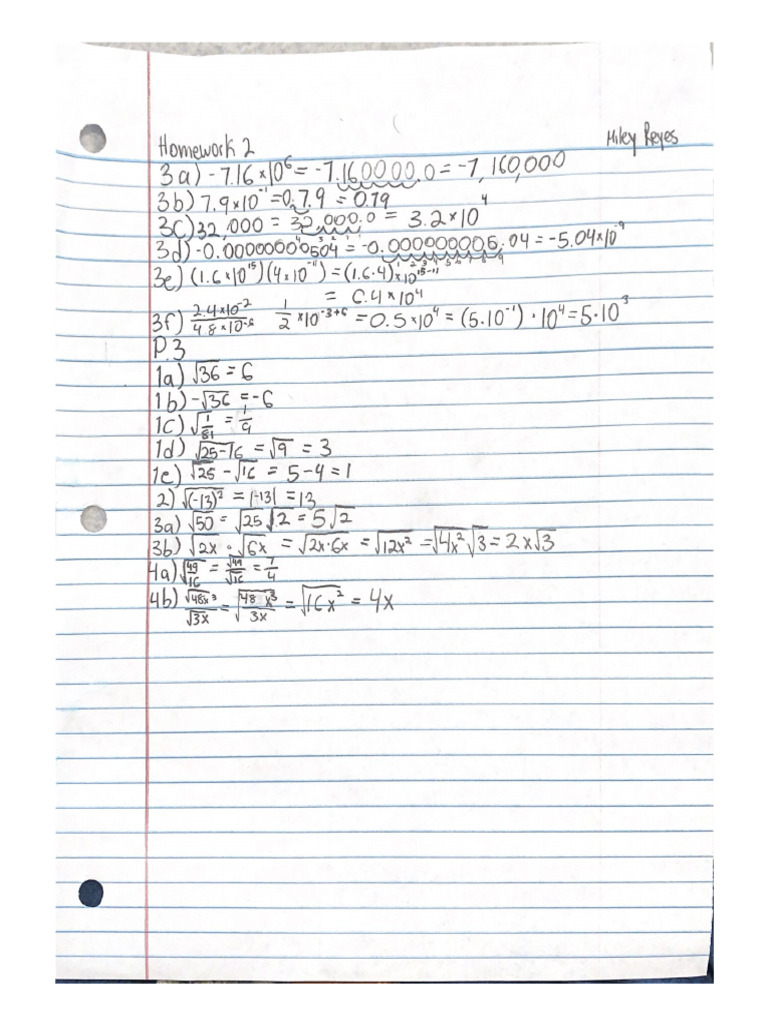 Miley Reyes
Homework 2
3a) -7.16×10⁶ = -7.160000.0 = -7,160,000
3b) 7.9×10⁻¹ = 0.7.9 = 0.79
3c) 32,000 = 32,000.0 = 3.2×10⁴
3d) -0.00000000504 = -0.000000005.04 = -5.04×10⁻⁹
3e) (1.6×10¹⁵)(4×10⁻¹¹) = (1.6·4)×10¹⁵⁻¹¹
= 6.4×10⁴
3f) 2.4×10⁻²/4.8×10⁻⁶ 1/2 ×10⁻³⁺⁶ = 0.5×10⁴ = (5.10⁻¹)·10⁴ = 5·10³
P.3
1a) √36 = 6
1b) -√36 = -6
1c) √1/81 = 1/9
1d) √25-16 = √9 = 3
1e) √25 - √16 = 5-4 = 1
2) √(-13)² = |-13| = 13
3a) √50 = √25 √2 = 5√2
3b) √2x · √6x = √2x·6x = √12x² = √4x² √3 = 2x√3
4a) √49/16 = √49/√16 = 7/4
4b) √48x³/√3x = √48x³/3x = √16x² = 4x